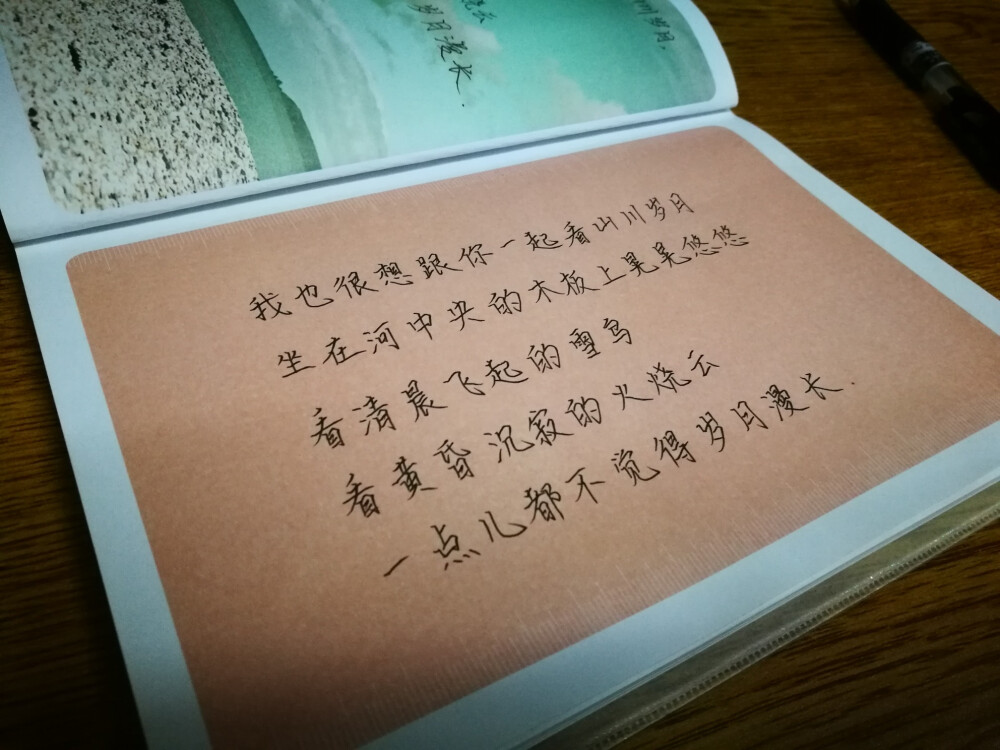 烧云
岁月漫长.
川岁月.
我也很想跟你一起看山川岁月
坐在河中央的木板上晃晃悠悠
看清晨飞起的雪鸟
看黄昏沉寂的火烧云
一点儿都不觉得岁月漫长.